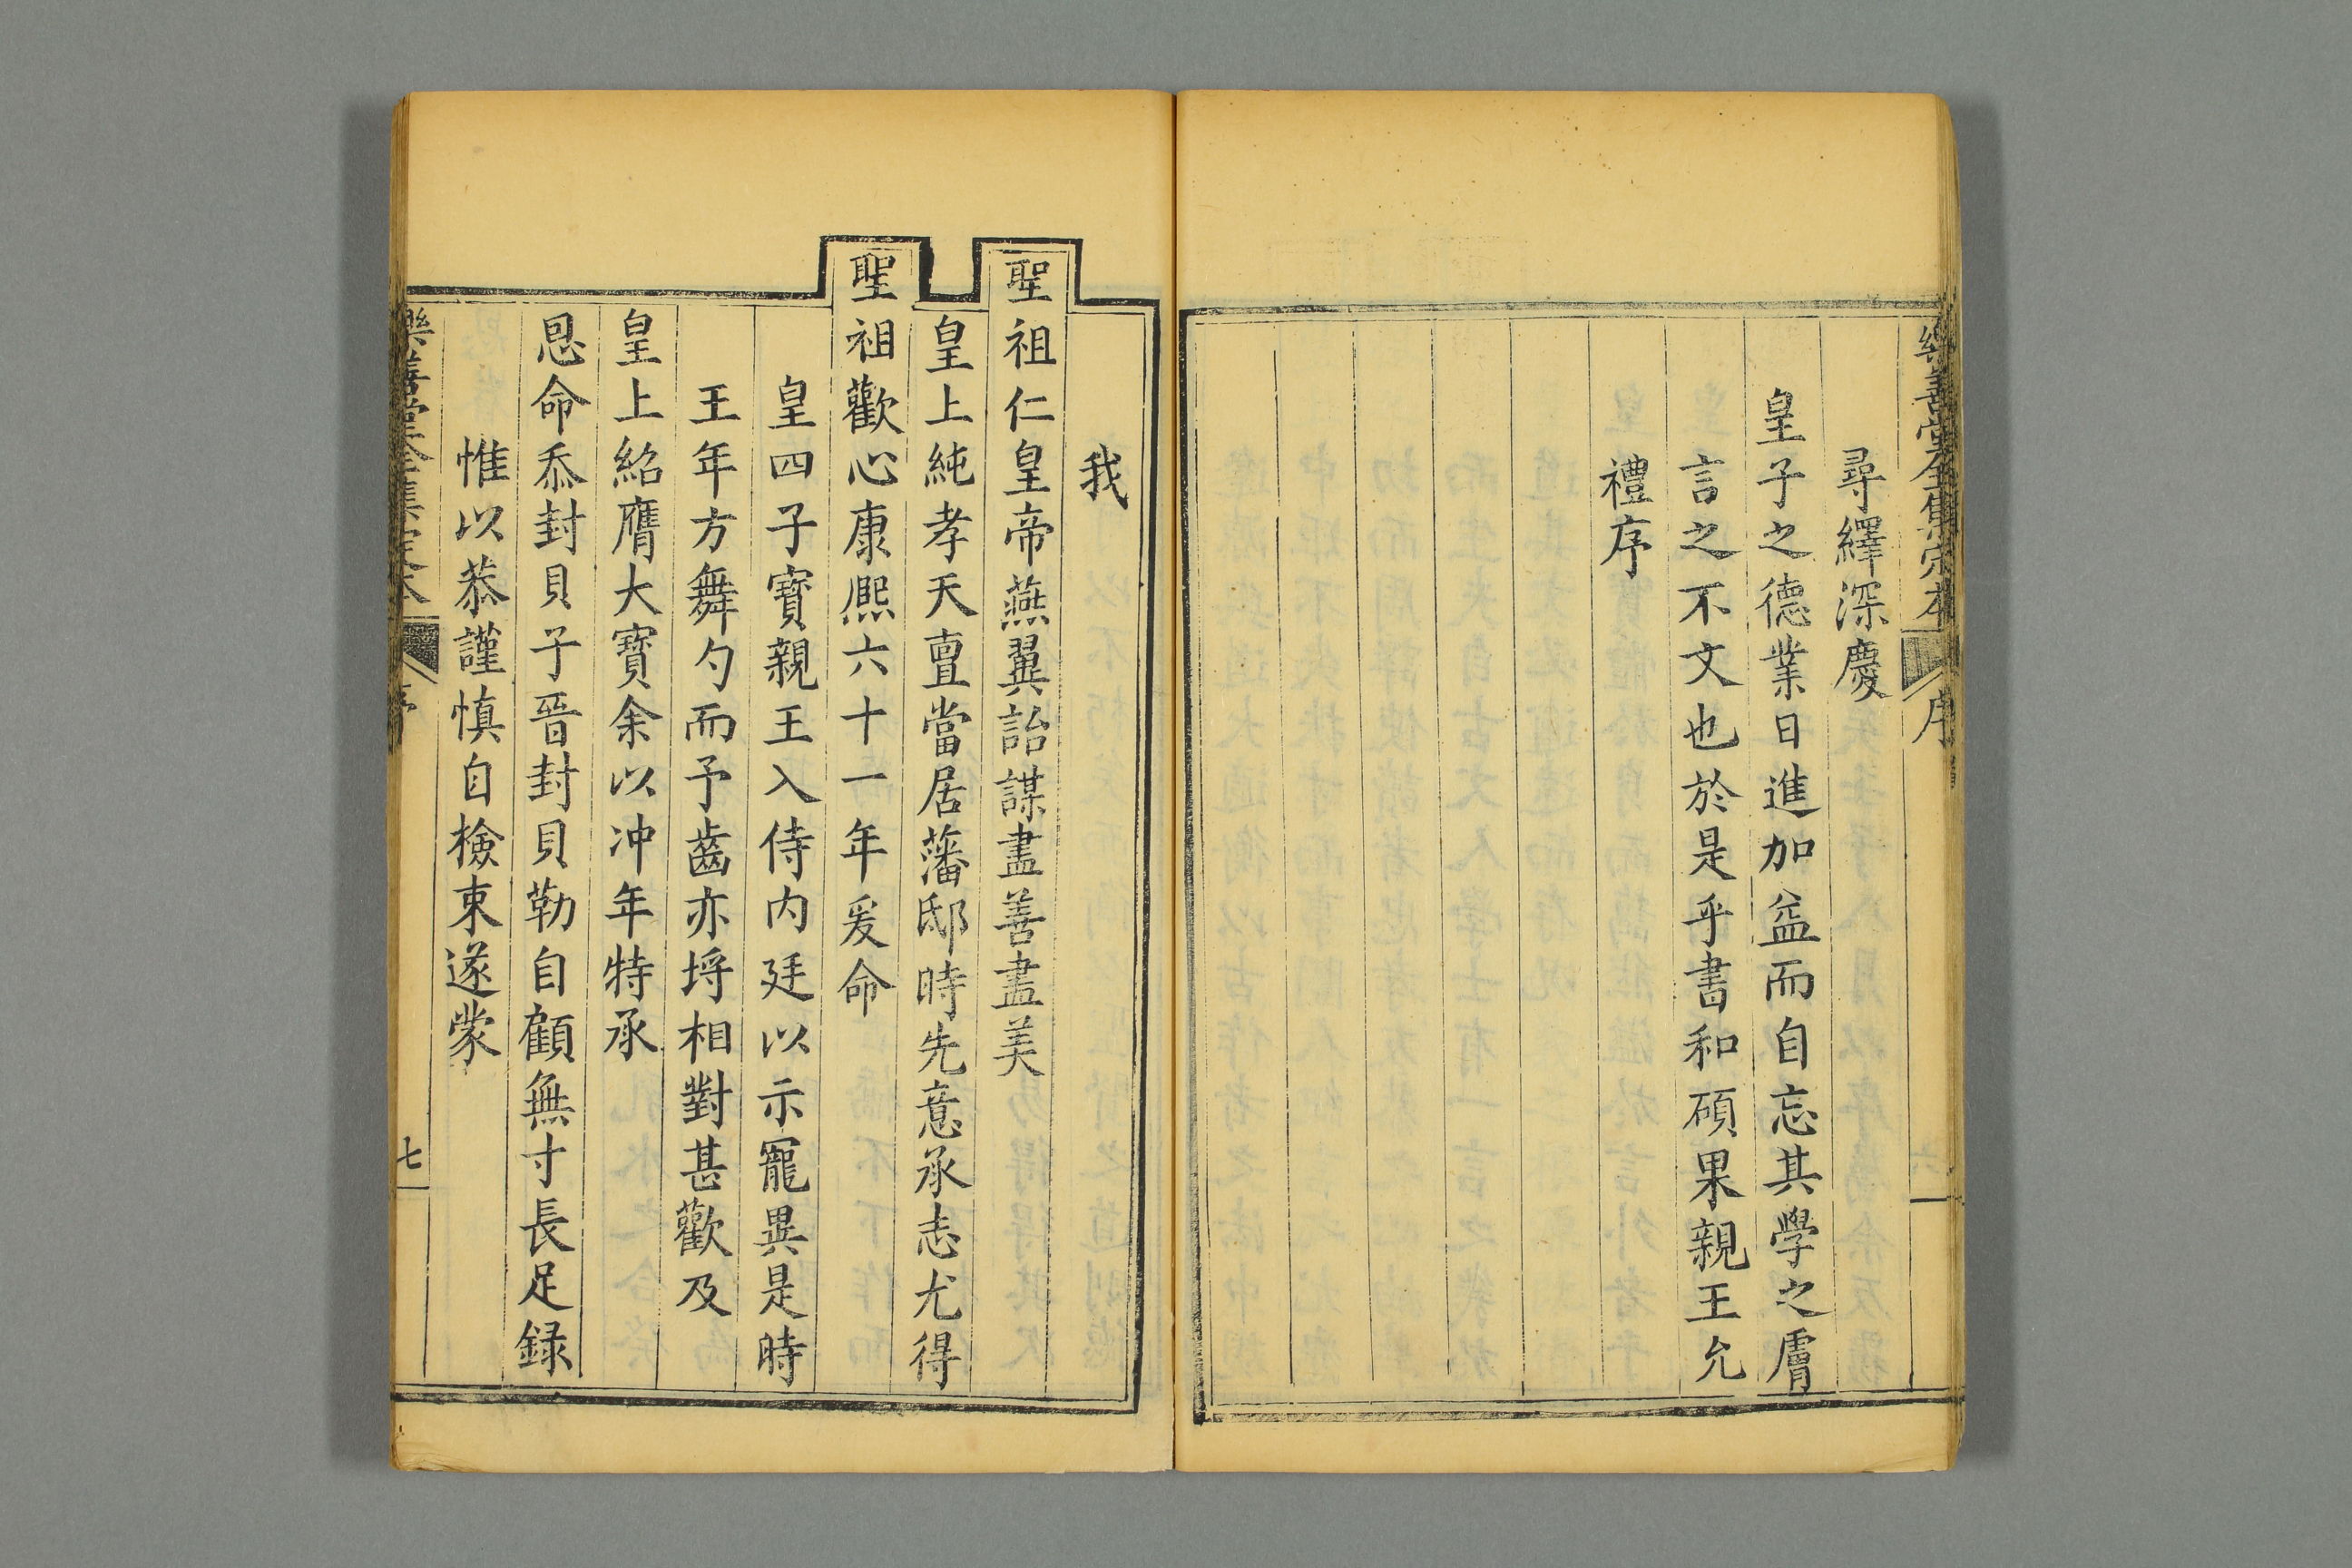 樂善堂全集定本 序
尋繹深慶
皇子之德業日進加益而自忘其學之膚
言之不文也於是乎書和碩果親王允
禮序
我
聖祖仁皇帝燕翼詒謀盡善盡美
皇上純孝天亶當居藩邸時先意承志尤得
聖祖歡心康熈六十一年爰命
皇四子寶親王入侍内廷以示寵異是時
王年方舞勺而予齒亦埒相對甚歡及
皇上紹膺大寶余以冲年特承
恩命忝封貝子晉封貝勒自顧無寸長足録
惟以恭謹慎自檢束遂蒙
樂善堂全集定本 序 七